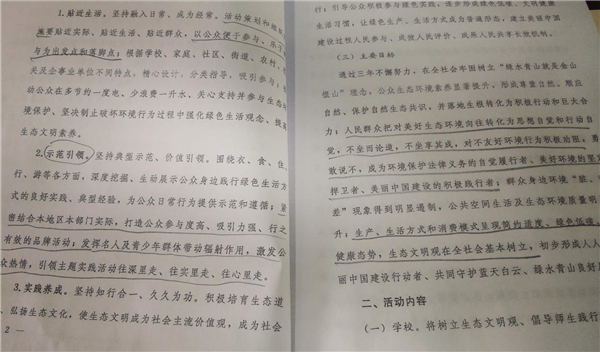 1.贴近生活。坚持融入日常、成为经常。活动策划和组织
施要贴近实际、贴近生活、贴近群众，以公众便于参与、乐于
与为出发点和落脚点；根据学校、家庭、社区、街道、农村、
关及企事业单位不同特点，精心设计，分类指导，吸引参与；
动公众在多节约一度电、少浪费一升水、关心支持并参与生态
境保护、坚决制止破坏环境行为过程中强化绿色生活观念、提高
生态文明素养。
2.示范引领。坚持典型示范、价值引领。围绕衣、食、住、
行、游等各方面，深度挖掘、生动展示公众身边践行绿色生活方
式的良好实践、典型经验，为公众日常行为提供示范和遵循；紧
密结合本地区本部门实际，打造公众参与度高、吸引力强、行之
有效的品牌活动；发挥名人及青少年群体带动辐射作用，激发公
众热情，引领主题实践活动往深里走、往实里走、往心里走。
3.实践养成。坚持知行合一、久久为功。积极培育生态道
，弘扬生态文化，使生态文明成为社会主流价值观，成为社会
2 —
行；引导公众积极参与绿色实践，逐步形成绿色低碳、文明健康
生活习惯，让绿色生产、生活方式成为普遍形态，建立美丽中国
建设过程人民参与、成效人民评价、成果人民共享长效机制。
（三）主要目标
通过三年不懈努力，在全社会牢固树立“绿水青山就是金山
银山”理念，公众生态环境素养显著提升，形成尊重自然、顺应
自然、保护自然生态共识，并落地生根转化为积极行动和巨大合
力；人民群众把对美好生态环境向往转化为思想自觉和行动自
觉，不坐而论道，不坐享其成，对不友好环境行为积极劝阻，勇
敢说不，成为环境保护法律义务的自觉履行者、美好环境的坚定
捍卫者、美丽中国建设的积极践行者；群众身边环境“脏、
差”现象得到明显遏制，公共空间生活及生态环境质量明
升；生产、生活方式和消费模式呈现简约适度、绿色低碳、
健康态势，生态文明观在全社会基本树立，初步形成人人
丽中国建设行动者、共同守护蓝天白云、绿水青山良好
二、活动内容
（一）学校。将树立生态文明观、倡导师生践行